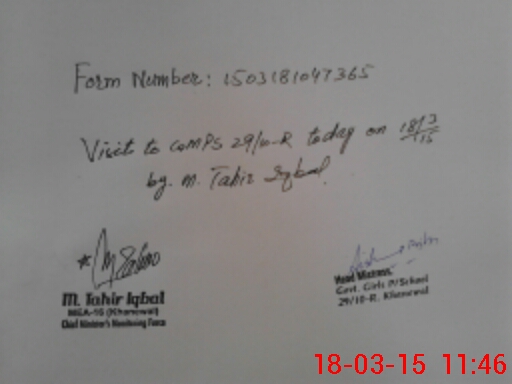 Form Number: 1503181047365
Visit to COMPS 29/10-R today on 18/3/15
by. M. Tahir Iqbal.
M. Tahir Iqbal
MEA-16 (Khanewal)
Chief Minister's Monitoring Force
Head Mistress
Govt. Girls P/School
29/10-R. Khanewal
18-03-15 11:46